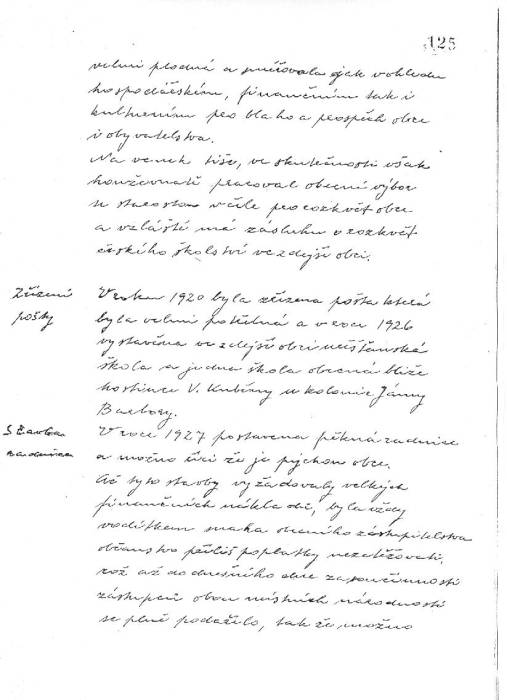 125
velmi plodná a směřovala jak v ohledu
hospodářském, finančním tak i
kulturním pro blaho a prospěch obce
i obyvatelstva.
Na venek tiše, ve skutečnosti však
houževnatě pracoval obecní výbor
se starostou v čele pro rozkvět obce
a vzláště má zásluhu o rozkvět
českého školství ve zdejší obci.
Zřízení
pošty
V roku 1920 byla zřízena pošta která
byla velmi potřebná a v roce 1926
vystavěna ve zdejší obci měšťanská
škola a jedna škola obecná blíže
hostince V. Kubény u kolonie Jámy
Barbory.
Stavba
radnice
V roce 1927 postavena pěkná radnice
a možno říci že je pýchou obce.
Ač tyto stavby vyžadovaly velkých
finančních nákladů, byla vždy
vodítkem snaha obecního zastupitelstva
občanstvo příliš poplatky nezatěžovati,
což až do dnešního dne za součinnosti
zástupců obou místních národností
se plně podařilo, tak že možno